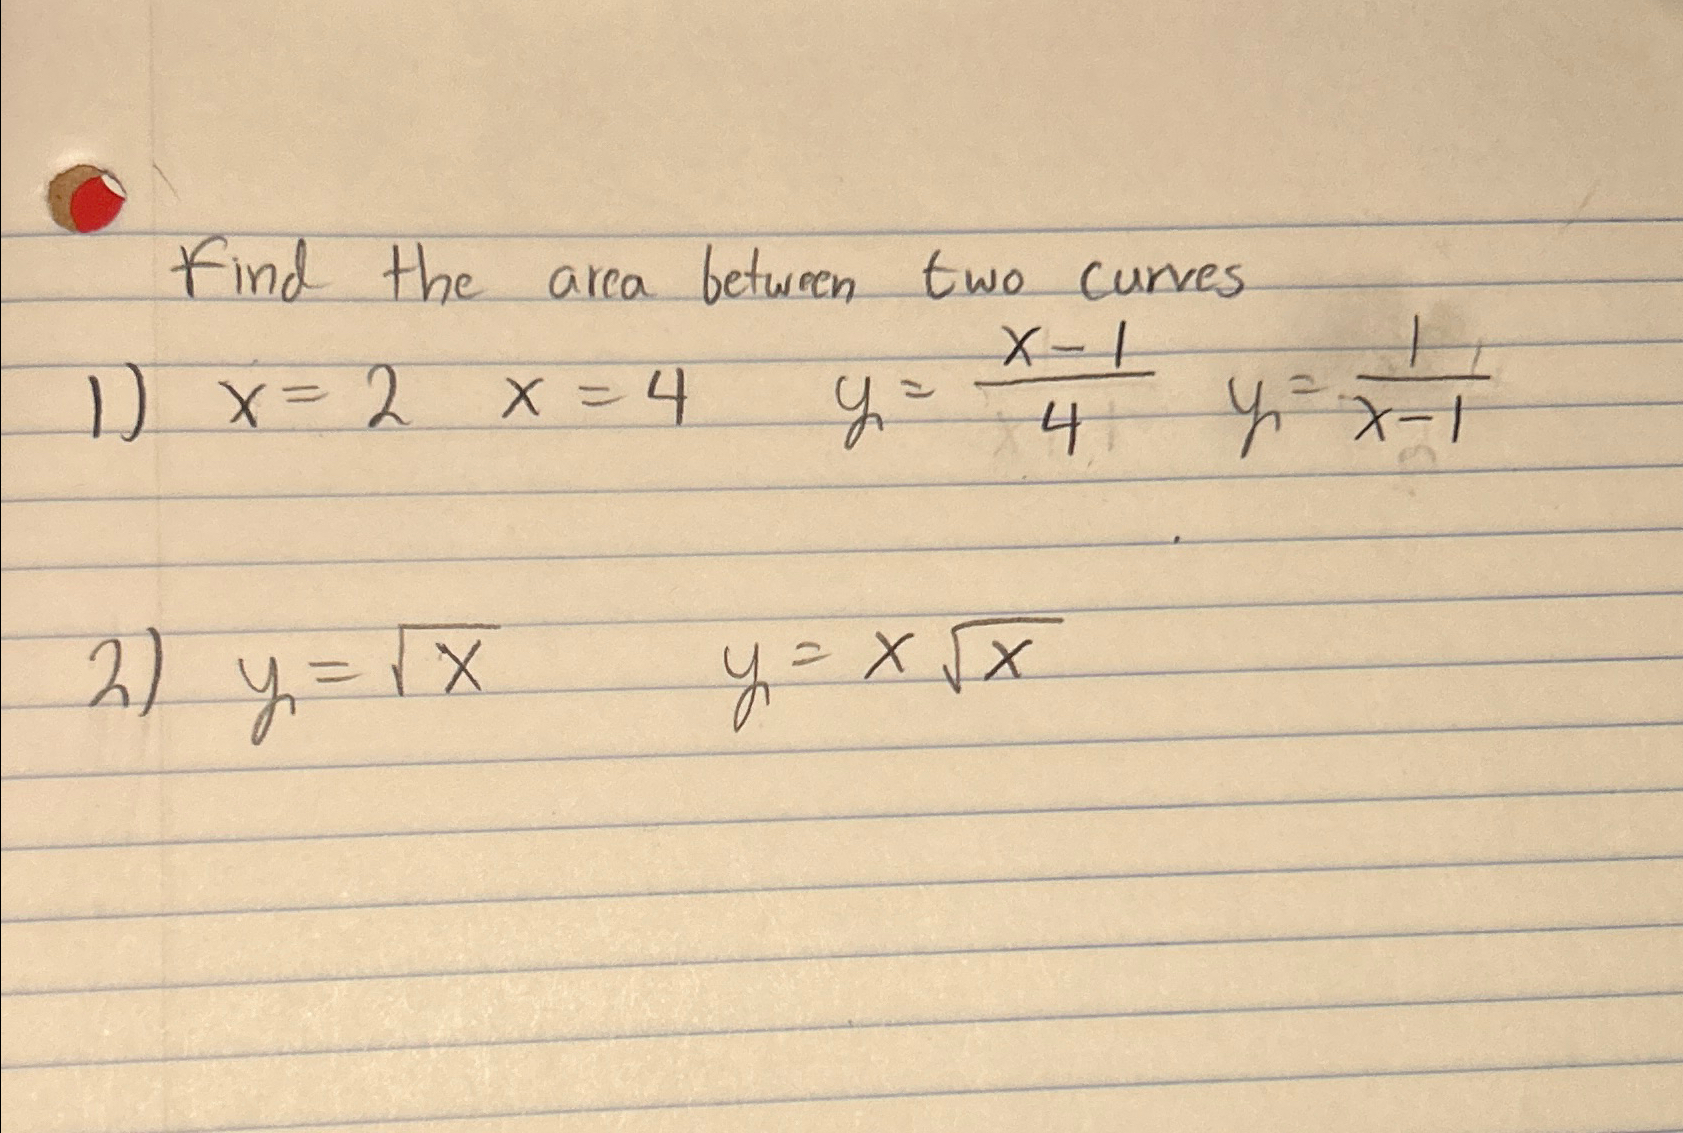 Find the area between two curves
1) x = 2 x = 4 y = \frac{x-1}{4} y = \frac{1}{x-1}
2) y = √x y = x√x